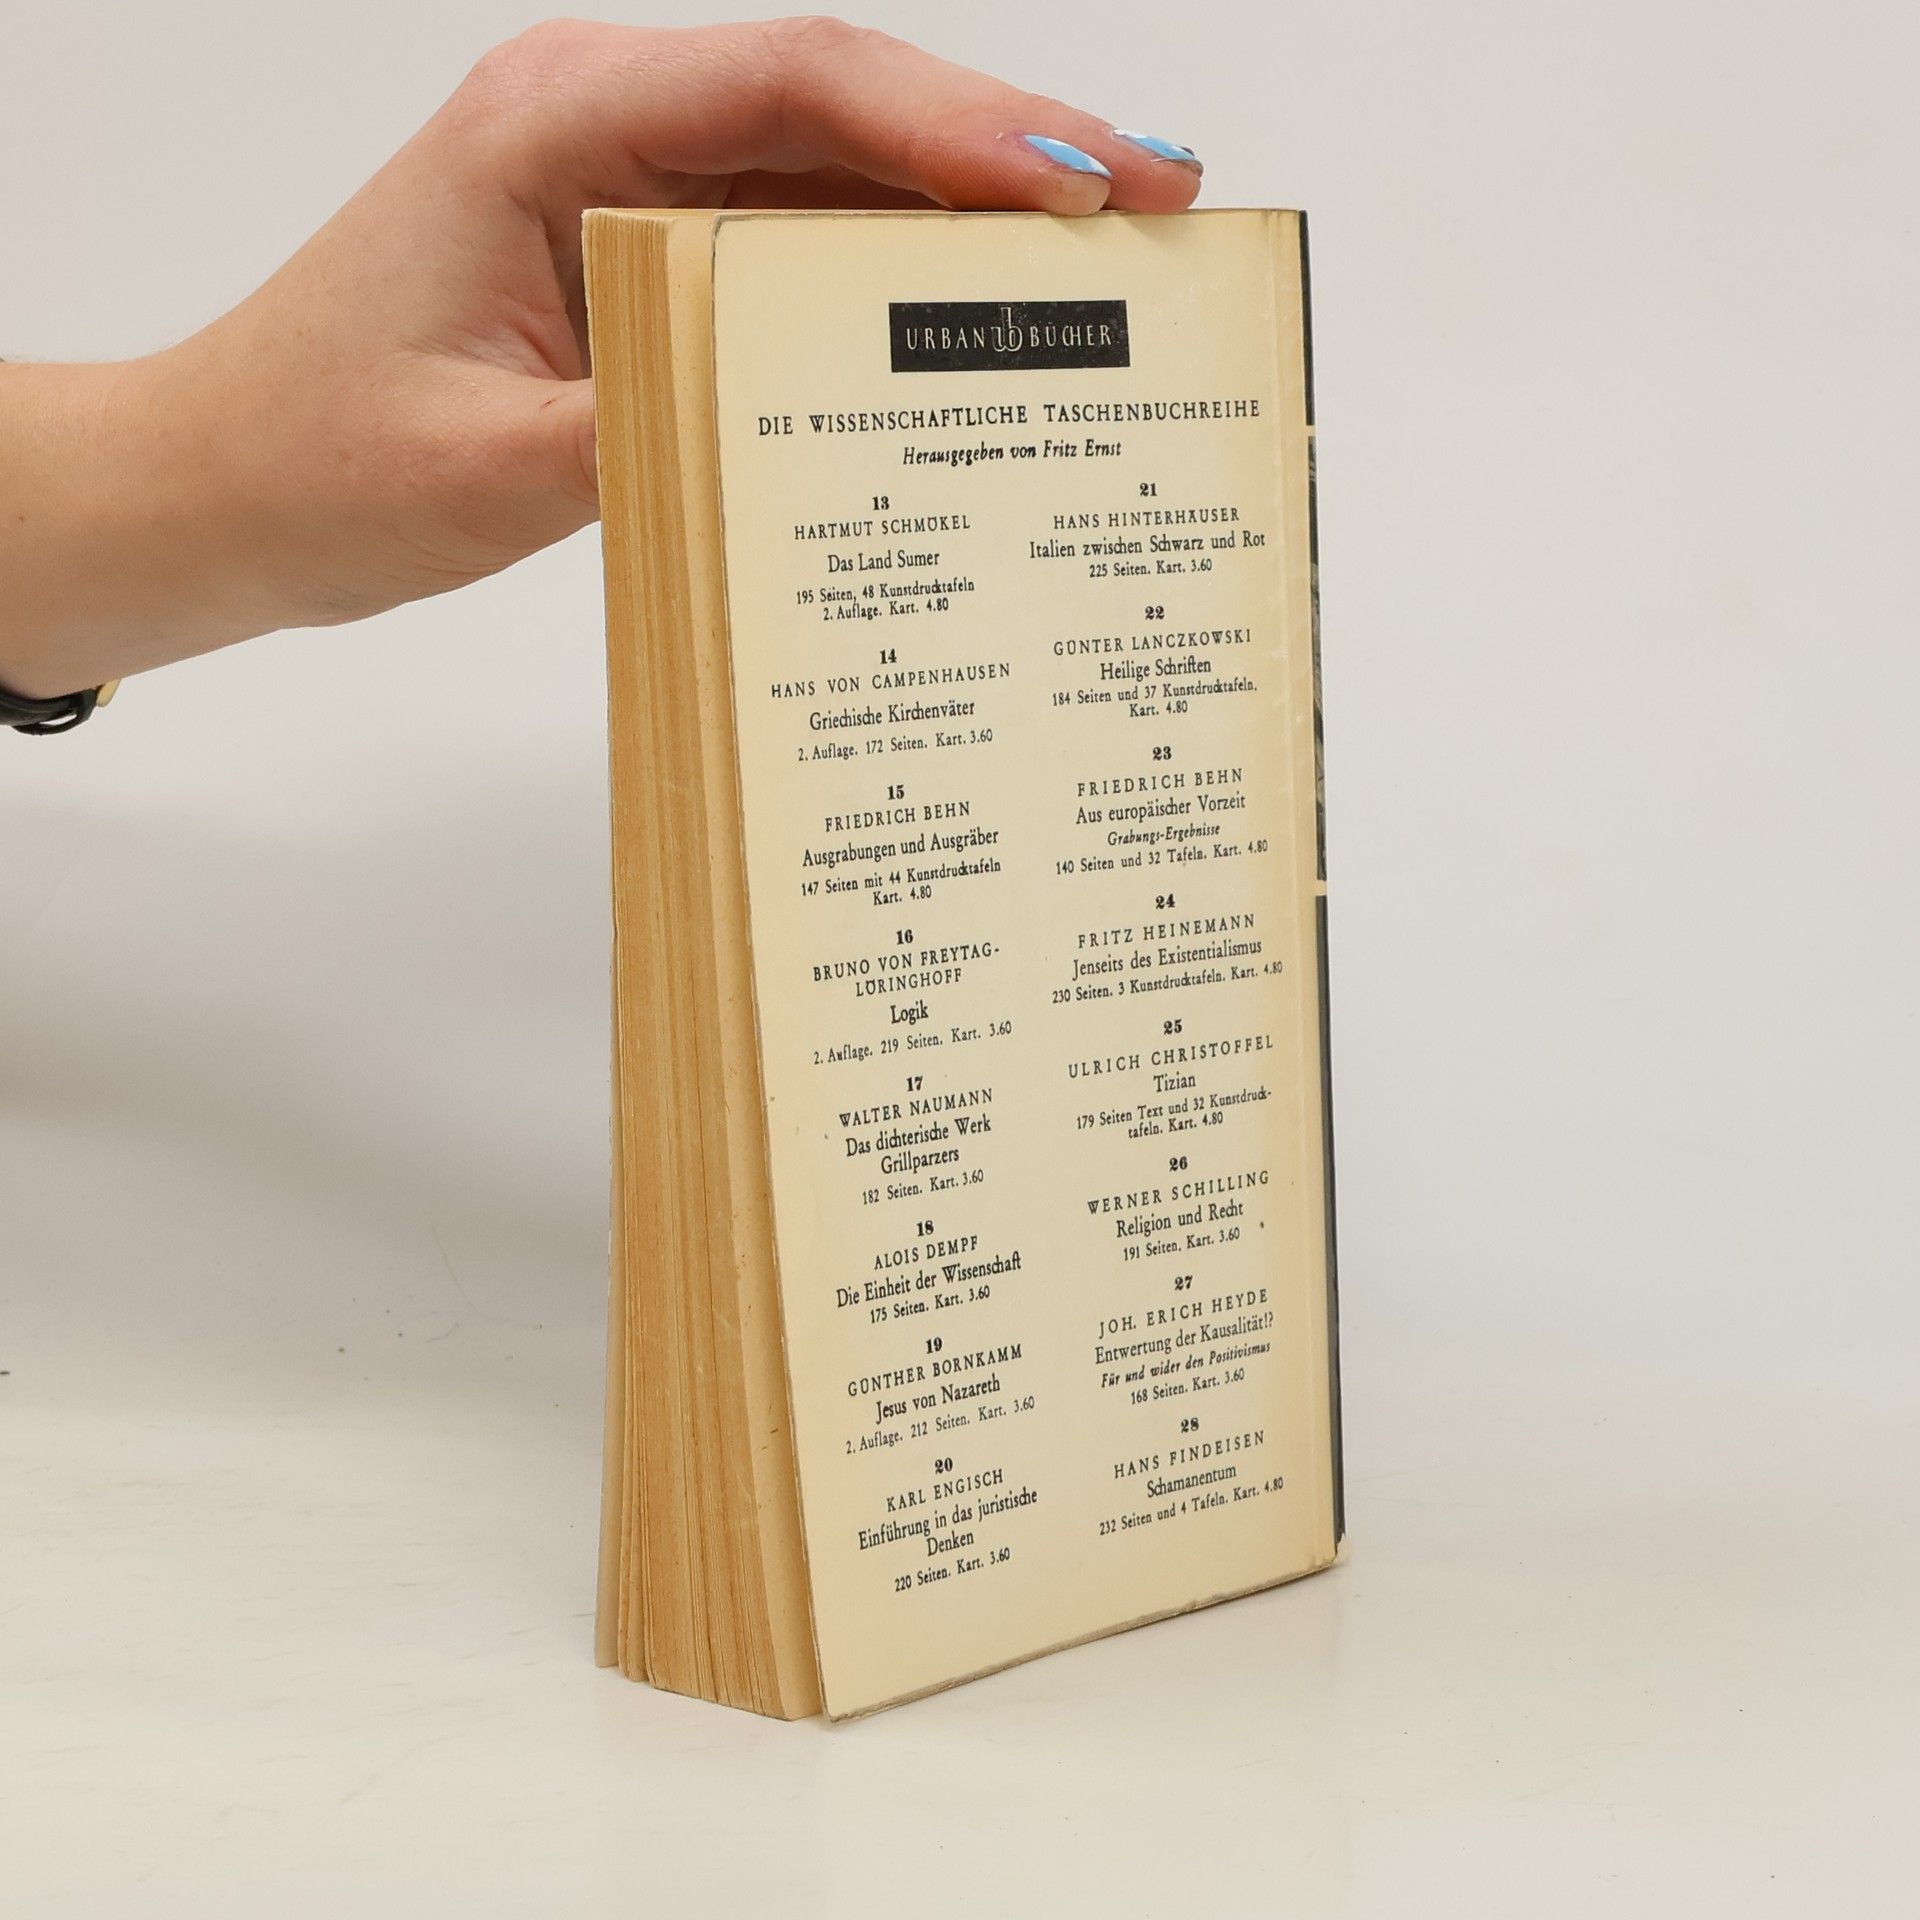 URBAN ub BÜCHER
DIE WISSENSCHAFTLICHE TASCHENBUCHREIHE
Herausgegeben von Fritz Ernst
13
HARTMUT SCHMÖKEL
Das Land Sumer
195 Seiten, 48 Kunstdrucktafeln
2. Auflage. Kart. 4.80
14
HANS VON CAMPENHAUSEN
Griechische Kirchenväter
2. Auflage. 172 Seiten. Kart. 3.60
15
FRIEDRICH BEHN
Ausgrabungen und Ausgräber
147 Seiten mit 44 Kunstdrucktafeln
Kart. 4.80
16
BRUNO VON FREYTAG-
LÖRINGHOFF
Logik
2. Auflage. 219 Seiten. Kart. 3.60
17
WALTER NAUMANN
Das dichterische Werk
Grillparzers
182 Seiten. Kart. 3.60
18
ALOIS DEMPF
Die Einheit der Wissenschaft
175 Seiten. Kart. 3.60
19
GÜNTHER BORNKAMM
Jesus von Nazareth
2. Auflage. 212 Seiten. Kart. 3.60
20
KARL ENGISCH
Einführung in das juristische
Denken
220 Seiten. Kart. 3.60
21
HANS HINTERHÄUSER
Italien zwischen Schwarz und Rot
225 Seiten. Kart. 3.60
22
GÜNTER LANCZKOWSKI
Heilige Schriften
184 Seiten und 37 Kunstdrucktafeln.
Kart. 4.80
23
FRIEDRICH BEHN
Aus europäischer Vorzeit
Grabungs-Ergebnisse
140 Seiten und 32 Tafeln. Kart. 4.80
24
FRITZ HEINEMANN
Jenseits des Existentialismus
230 Seiten. 3 Kunstdrucktafeln. Kart. 4.80
25
ULRICH CHRISTOFFEL
Tizian
179 Seiten Text und 32 Kunstdruck-
tafeln. Kart. 4.80
26
WERNER SCHILLING
Religion und Recht
191 Seiten. Kart. 3.60
27
JOH. ERICH HEYDE
Entwertung der Kausalität!?
Für und wider den Positivismus
168 Seiten. Kart. 3.60
28
HANS FINDEISEN
Schamanentum
232 Seiten und 4 Tafeln. Kart. 4.80